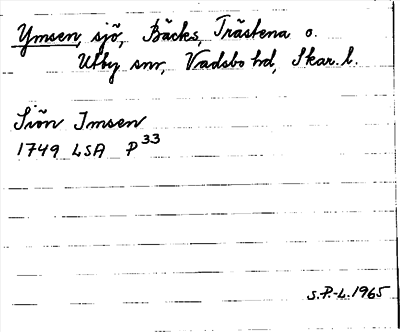 Ymsen, sjö, Bäcks, Trästena o.
Utby snr, Vadsbo hd, Skar. l.
Siön Imsen
1749 LSA P 33
S.P.-L. 1965